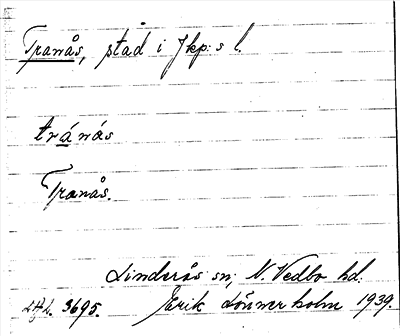 Tranås, stad i Jkp:s l.
tránás
Tranås.
Linderås sn, N. Vedbo hd.
3695. Erik Lönnerholm 1939.